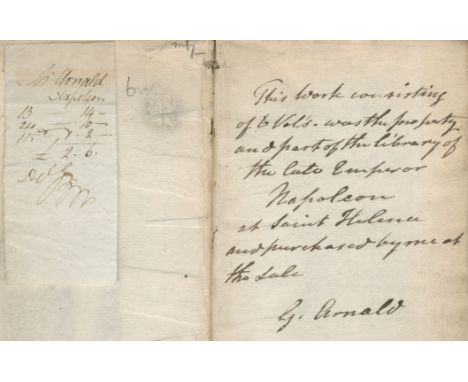 Mr Arnald
Napoleon
13 14 -
24 10 -
115 2 -
£ 2. 6.
This work consisting
of 6 Vols. was the property
and part of the library of
the late Emperor
Napoleon
at Saint Helena
and purchased by me at
the Sale
G. Arnald